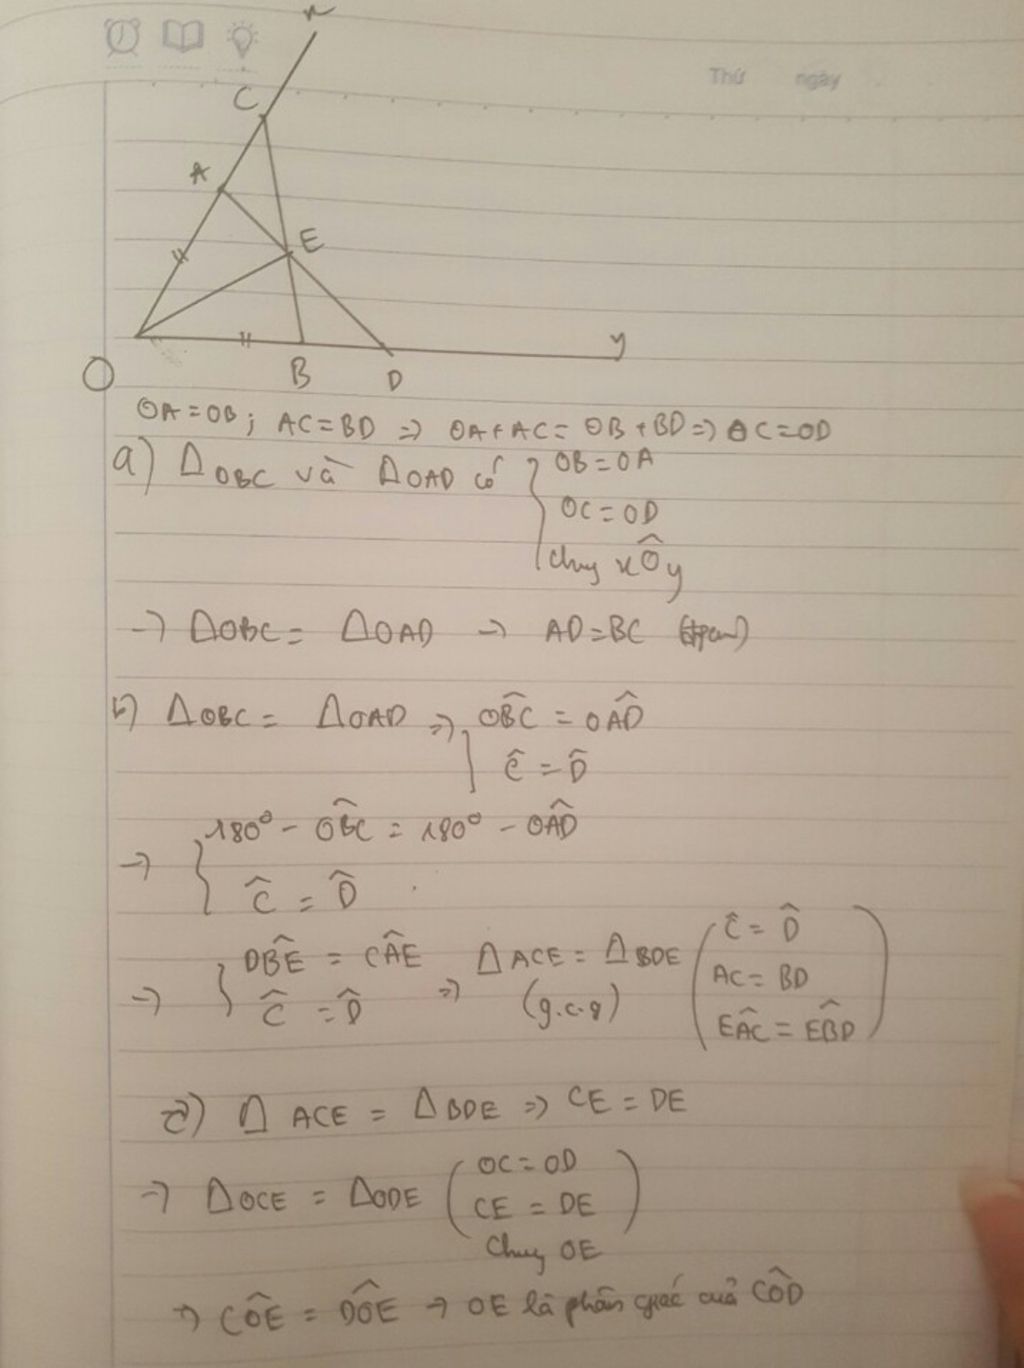 Thứ ngày
x
C
A
E
y
O B D
OA = OB ; AC = BD => OA + AC = OB + BD => OC = OD
a) Δ OBC và Δ OAD có { OB = OA
OC = OD
chung xÔy
-> ΔOBC = ΔOAD -> AD = BC (đpcm)
b) ΔOBC = ΔOAD => { OB̂C = OÂD
Ĉ = D̂
-> { 180° - OB̂C = 180° - OÂD
Ĉ = D̂
-> { DB̂E = CÂE
Ĉ = D̂ => Δ ACE = Δ BDE (g.c.g) ( Ĉ = D̂
AC = BD
EÂC = EB̂D )
c) Δ ACE = Δ BDE => CE = DE
-> ΔOCE = ΔODE ( OC = OD
CE = DE )
Chung OE
-> CÔE = DÔE -> OE là phân giác của CÔD